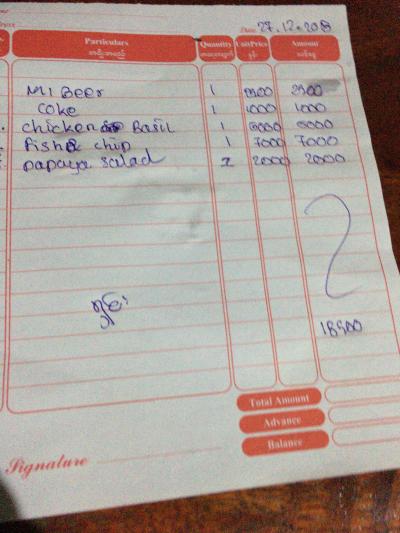 Date 27.12.2018
Particulars Quantity Unit Price Amount
အမျိုးအမည် အရေအတွက် နှုန်း သင့်ငွေ
MI Beer 1 2500 2500
Coke 1 1000 1000
chicken Basil 1 6000 6000
Fish & chip 1 7000 7000
papaya salad 1 2000 2000
ရှင်း
18500
Total Amount
Advance
Balance
Signature